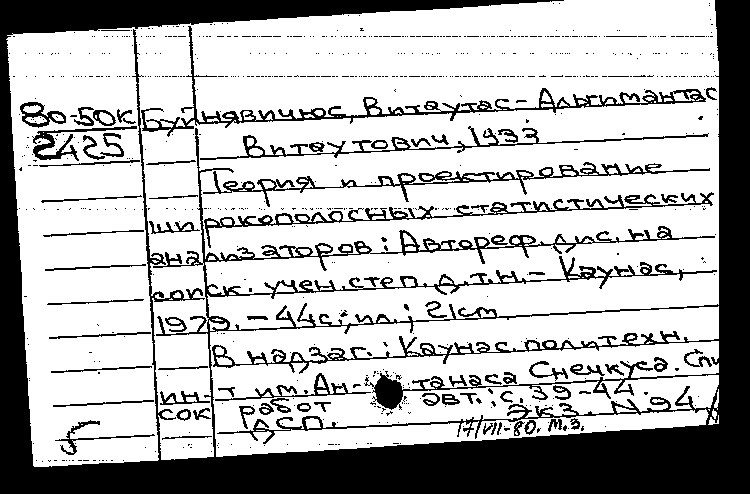 80-50К Буйнявичюс, Витаутас-Альгимантас
2425 Витаутович, 1933
Теория и проектирование
широкополосных статистических
анализаторов: Автореф. дис. на
соиск. учен. степ. д.т.н. - Каунас,
1979. - 44с.; ил.; 21см.
В надзаг.: Каунас. политехн.
ин-т им. Антанаса Снечкуса. Спи
сок работ авт.: с. 39-44.
ДСП. Экз. N.94
17/VII-80. М.З.